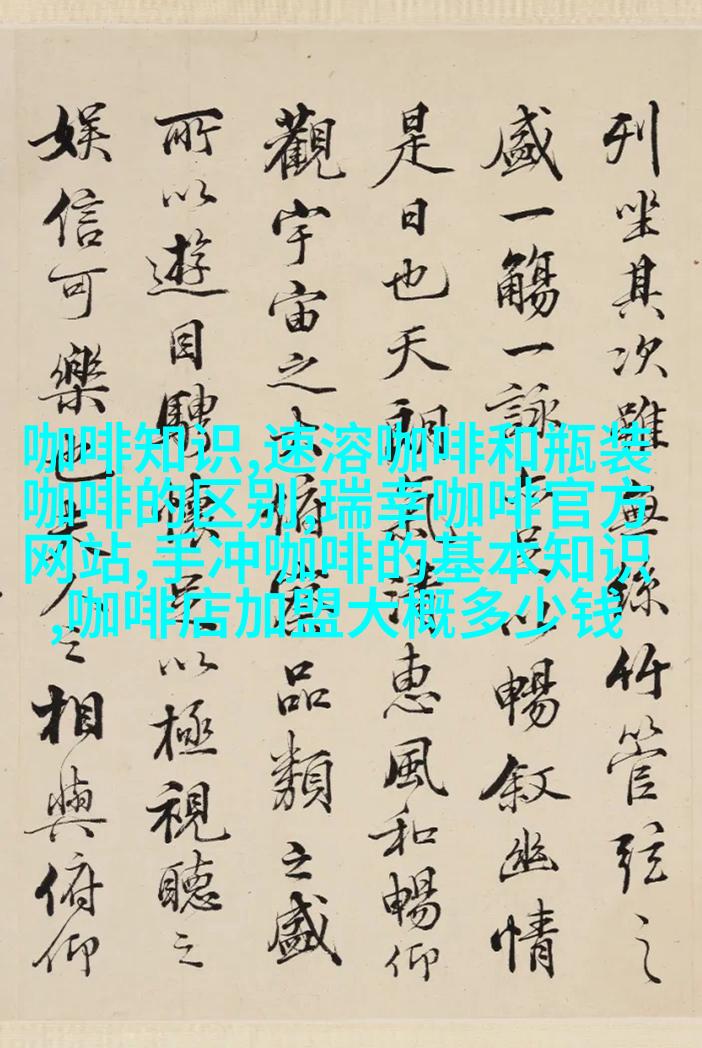 列坐其次雖無絲竹管弦之
盛一觴一詠亦足以暢叙幽情
是日也天朗氣清惠風和暢仰
觀宇宙之大俯察品類之盛
所以遊目騁懷足以極視聽之
娛信可樂也夫人之相與俯仰
咖啡知识,速溶咖啡和瓶装
咖啡的区别,瑞幸咖啡官方
网站,手冲咖啡的基本知识
,咖啡店加盟大概多少钱